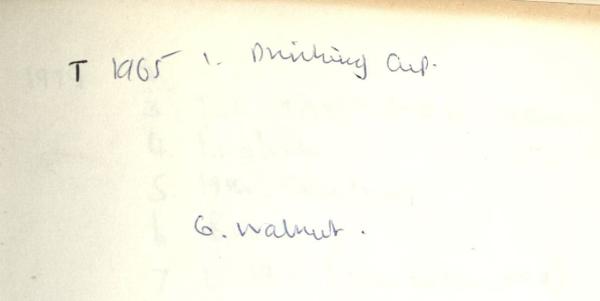 T 1965 1. Drinking Cup.
6. Walnut.